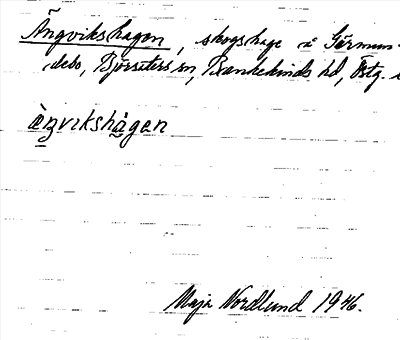 Ängvikshagen, skogshage å Görmun-
debo, Björsäters sn, Bankekinds hd, Östg.
ànvikshagen
Maja Nordlund 1946.